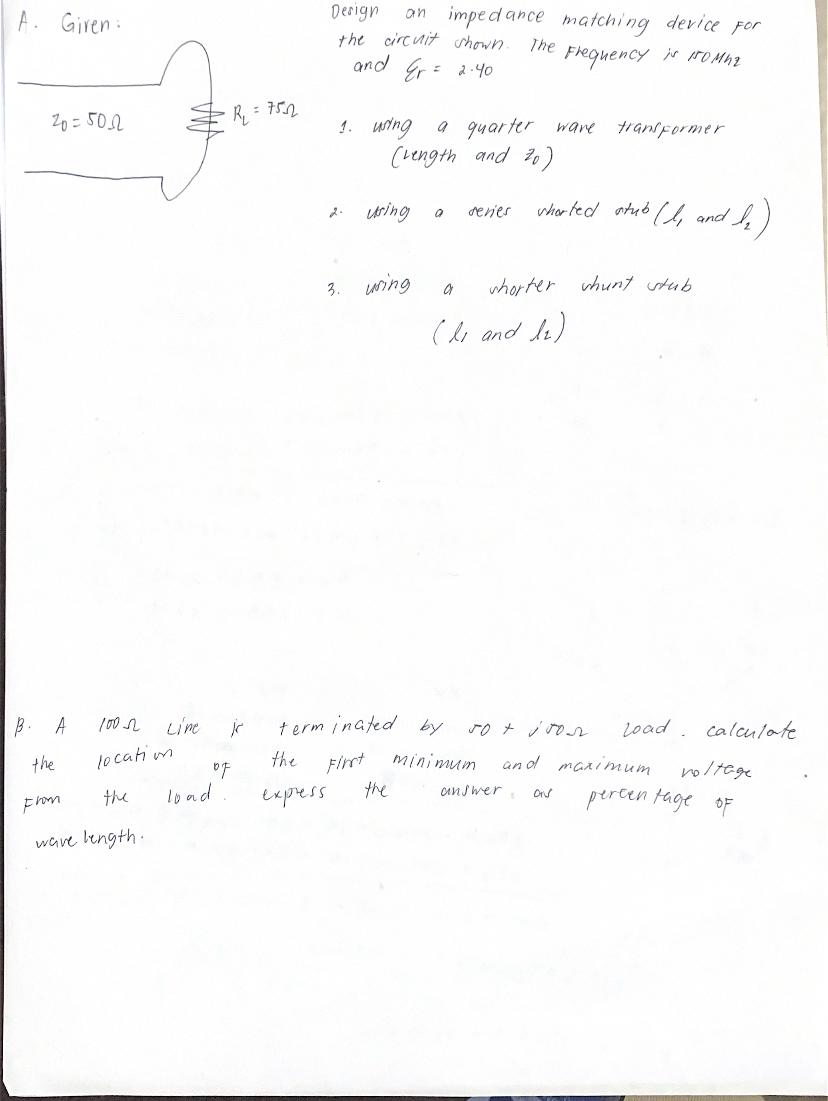 A. Given:
Z0 = 50Ω
RL = 75Ω
Design an impedance matching device for
the circuit shown. The Frequency is 150 Mhz
and Ɛr = 2.40
1. using a quarter wave transformer
(Length and Z0)
2. using a series shorted stub (l1 and l2)
3. using a shorter shunt stub
(l1 and l2)
B. A 100Ω Line is terminated by 50 + j50Ω load. calculate
the location of the First minimum and maximum voltage
From the load. express the answer as percentage of
wave length.